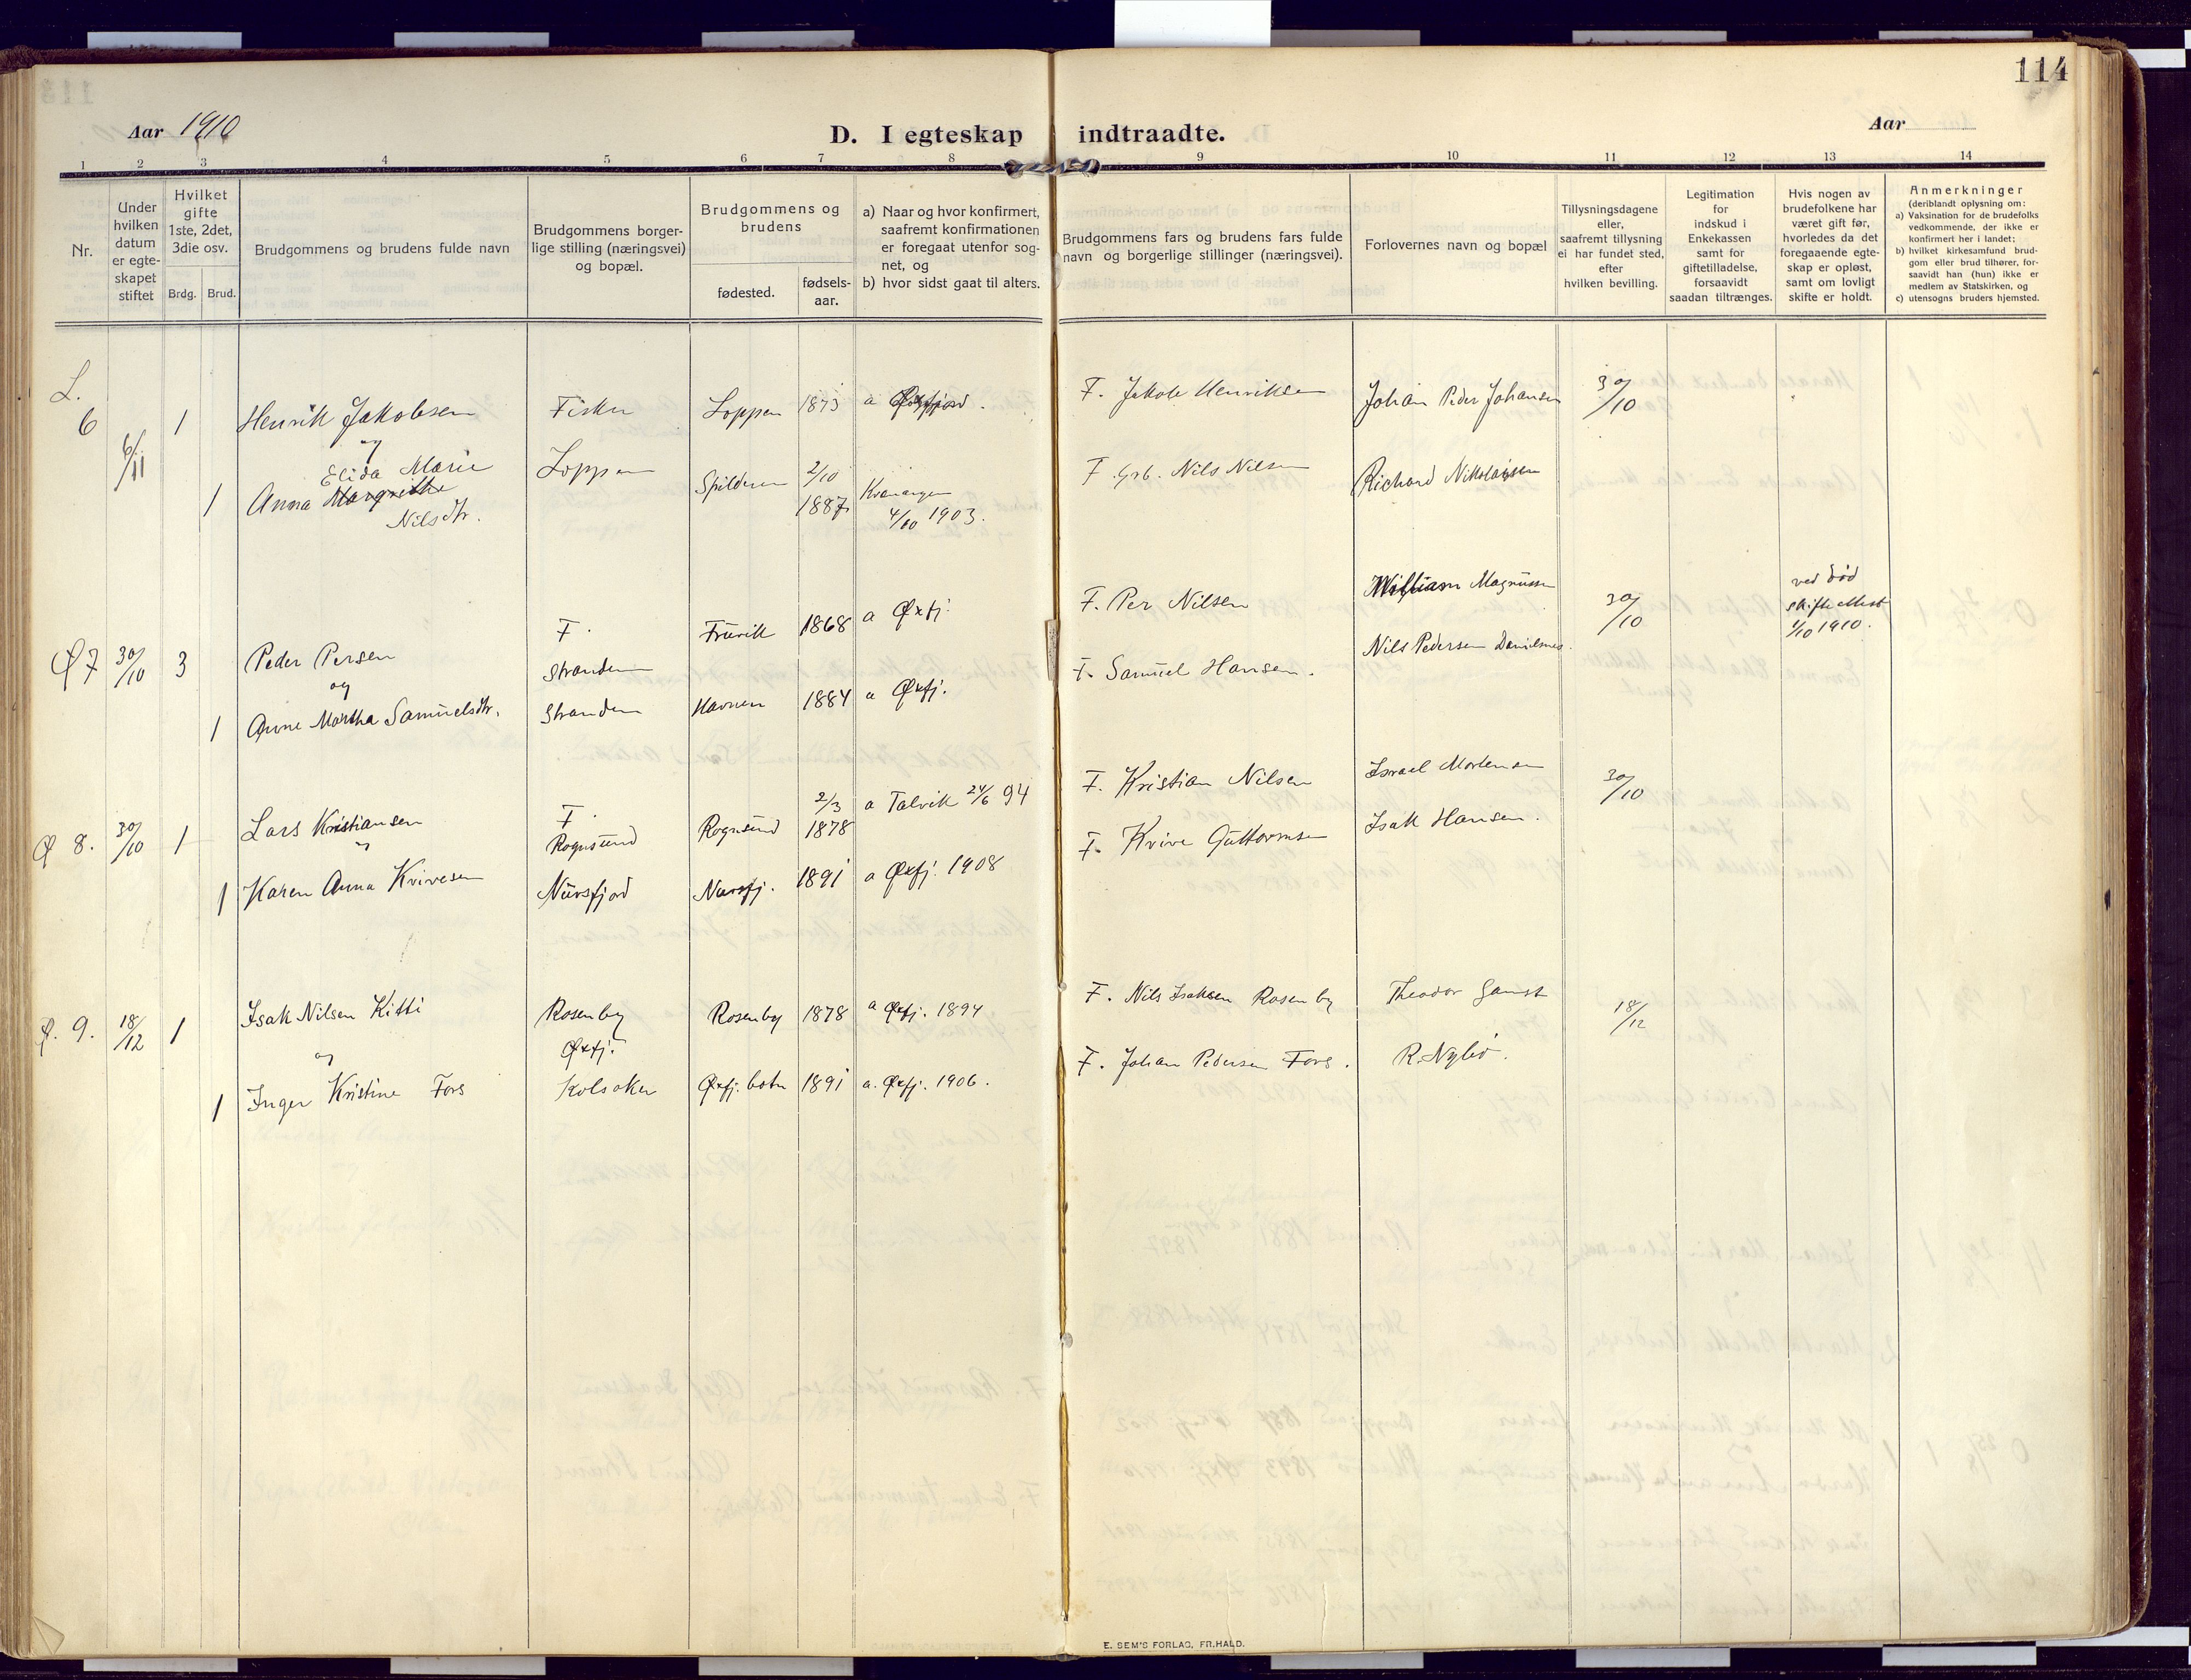 114
Aar 1910
D. I egteskap indtraadte.
Aar
1 2 3 4 5 6 7 8 9 10 11 12 13 14
Nr.
Under hvilken datum er egte-skapet stiftet
Hvilket gifte 1ste, 2det, 3die osv.
Brdg. Brud.
Brudgommens og brudens fulde navn
Brudgommens borger-
lige stilling (næringsvei)
og bopæl.
Brudgommens og
brudens
fødested.
fødsels-
aar.
a) Naar og hvor konfirmert,
saafremt konfirmationen
er foregaat utenfor sog-
net, og
b) hvor sidst gaat til alters.
Brudgommens fars og brudens fars fulde
navn og borgerlige stillinger (næringsvei).
Forlovernes navn og bopæl
Tillysningsdagene
eller,
saafremt tillysning
ei har fundet sted,
efter
hvilken bevilling.
Legitimation
for
indskud i
Enkekassen
samt for
giftetilladelse,
forsaavidt
saadan tiltrænges.
Hvis nogen av
brudefolkene har
været gift før,
hvorledes da det
foregaaende egte-
skap er opløst,
samt om lovligt
skifte er holdt.
Anmerkninger
(deriblandt oplysning om:
a) Vaksination for de brudefolks
vedkommende, der ikke er
konfirmert her i landet;
b) hvilket kirkesamfund brud-
gom eller brud tilhører, for-
saavidt han (hun) ikke er
medlem av Statskirken, og
c) utensogns bruders hjemsted.
L.
6 6/11 1 Henrik Jakobsen Fisker Loppen 1873 a Øxfjord. F. Jakob Henriksen Johan Peder Johansen 30/10
og
Elida Marie
1 Anna Margrethe Nilsdtr. Loppen Spilderen 2/10 1887 Kvænangen 4/10 1903. F. Grb. Nils Nilsen Richard Nikolaisen
Ø 7 30/10 3 Peder Persen F. Stranden Fruvik 1868 a Øxfj. F. Per Nilsen William Magnussen 30/10 ved død skifte attest 1/10 1910.
og
1 Anne Martha Samuelsdtr. Stranden Havnen 1884 a Øxfj. F. Samuel Hansen. Nils Pedersen Danielnes.
Ø 8. 30/10 1 Lars Kristiansen F. Rognsund Rognsund 2/3 1878 a Talvik 24/6 94 F. Kristian Nilsen Israel Mortensen 30/10
og
1 Karen Anna Kvivesen Nuvsfjord Nuvsfj. 1891 a Øxfj. 1908 F. Kvive Guttormsen Isak Hansen.
Ø. 9. 18/12 1 Isak Nilsen Kitti Rosenby Øxfj. Rosenby 1878 a Øxfj. 1894 F. Nils Isaksen Rosenby Theodor Gamst 18/12
og
1 Inger Kristine Fors Kolsaker Øxfj. botn 1891 a. Øxfj. 1906. F. Johan Pedersen Fors. R. Nybø.
E. SEM'S FORLAG, FR.HALD.